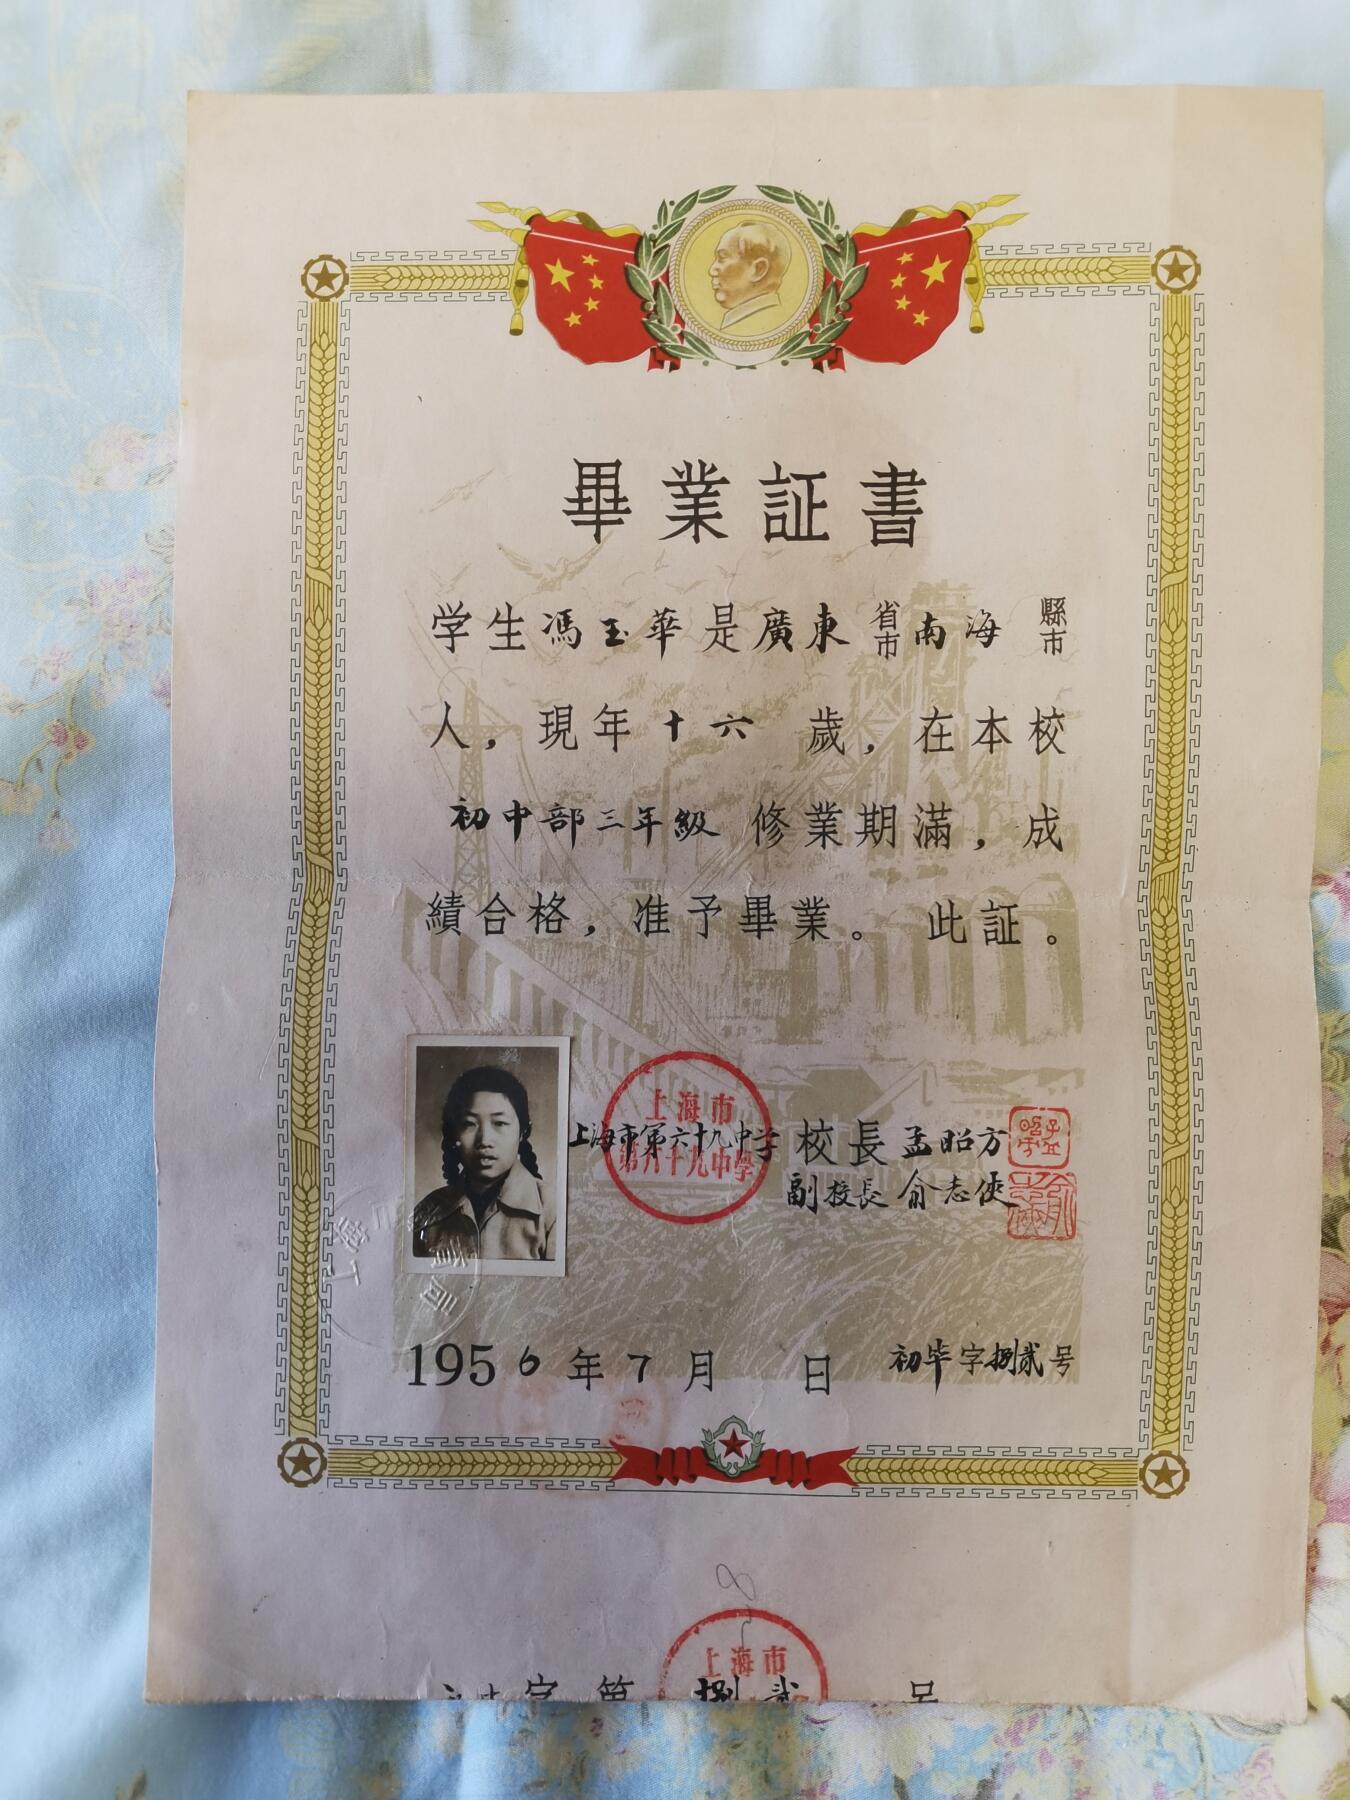 畢業証書
学生馮玉華是廣東省市南海縣市
人，現年十六歲，在本校
初中部三年級修業期滿，成
績合格，准予畢業。此証。
上海市
第六十九中學
上海市第六十九中学校長孟昭方
副校長俞志俠
1956年7月 日 初毕字捌貳号
上海市
字第捌貳号